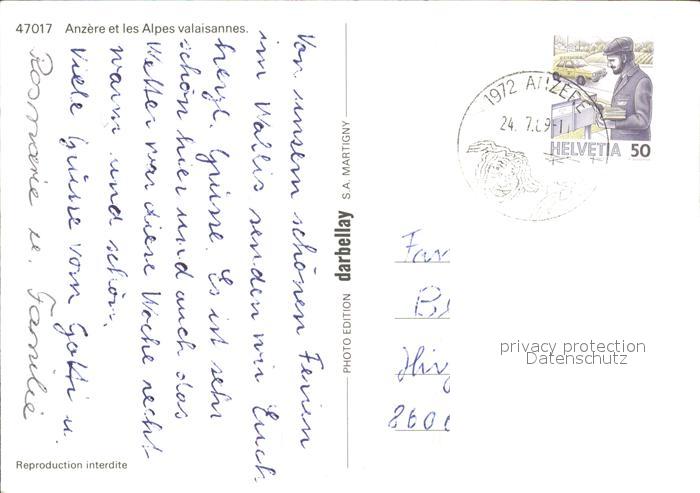 47017 Anzère et les Alpes valaisannes.
Von unsern schönen Ferien
im Wallis senden wir Euch
herzl. Grüsse. Es ist sehr
schön hier und auch das
Wetter war diese Woche recht
warm und schön.
Viele Grüsse vom Gotti u.
Rosmarie u. Familie
Reproduction interdite
PHOTO EDITION darbellay S.A. MARTIGNY
1972 ANZERE
24. 7.89-11
HELVETIA 50
Fam
Hir
860
privacy protection
Datenschutz